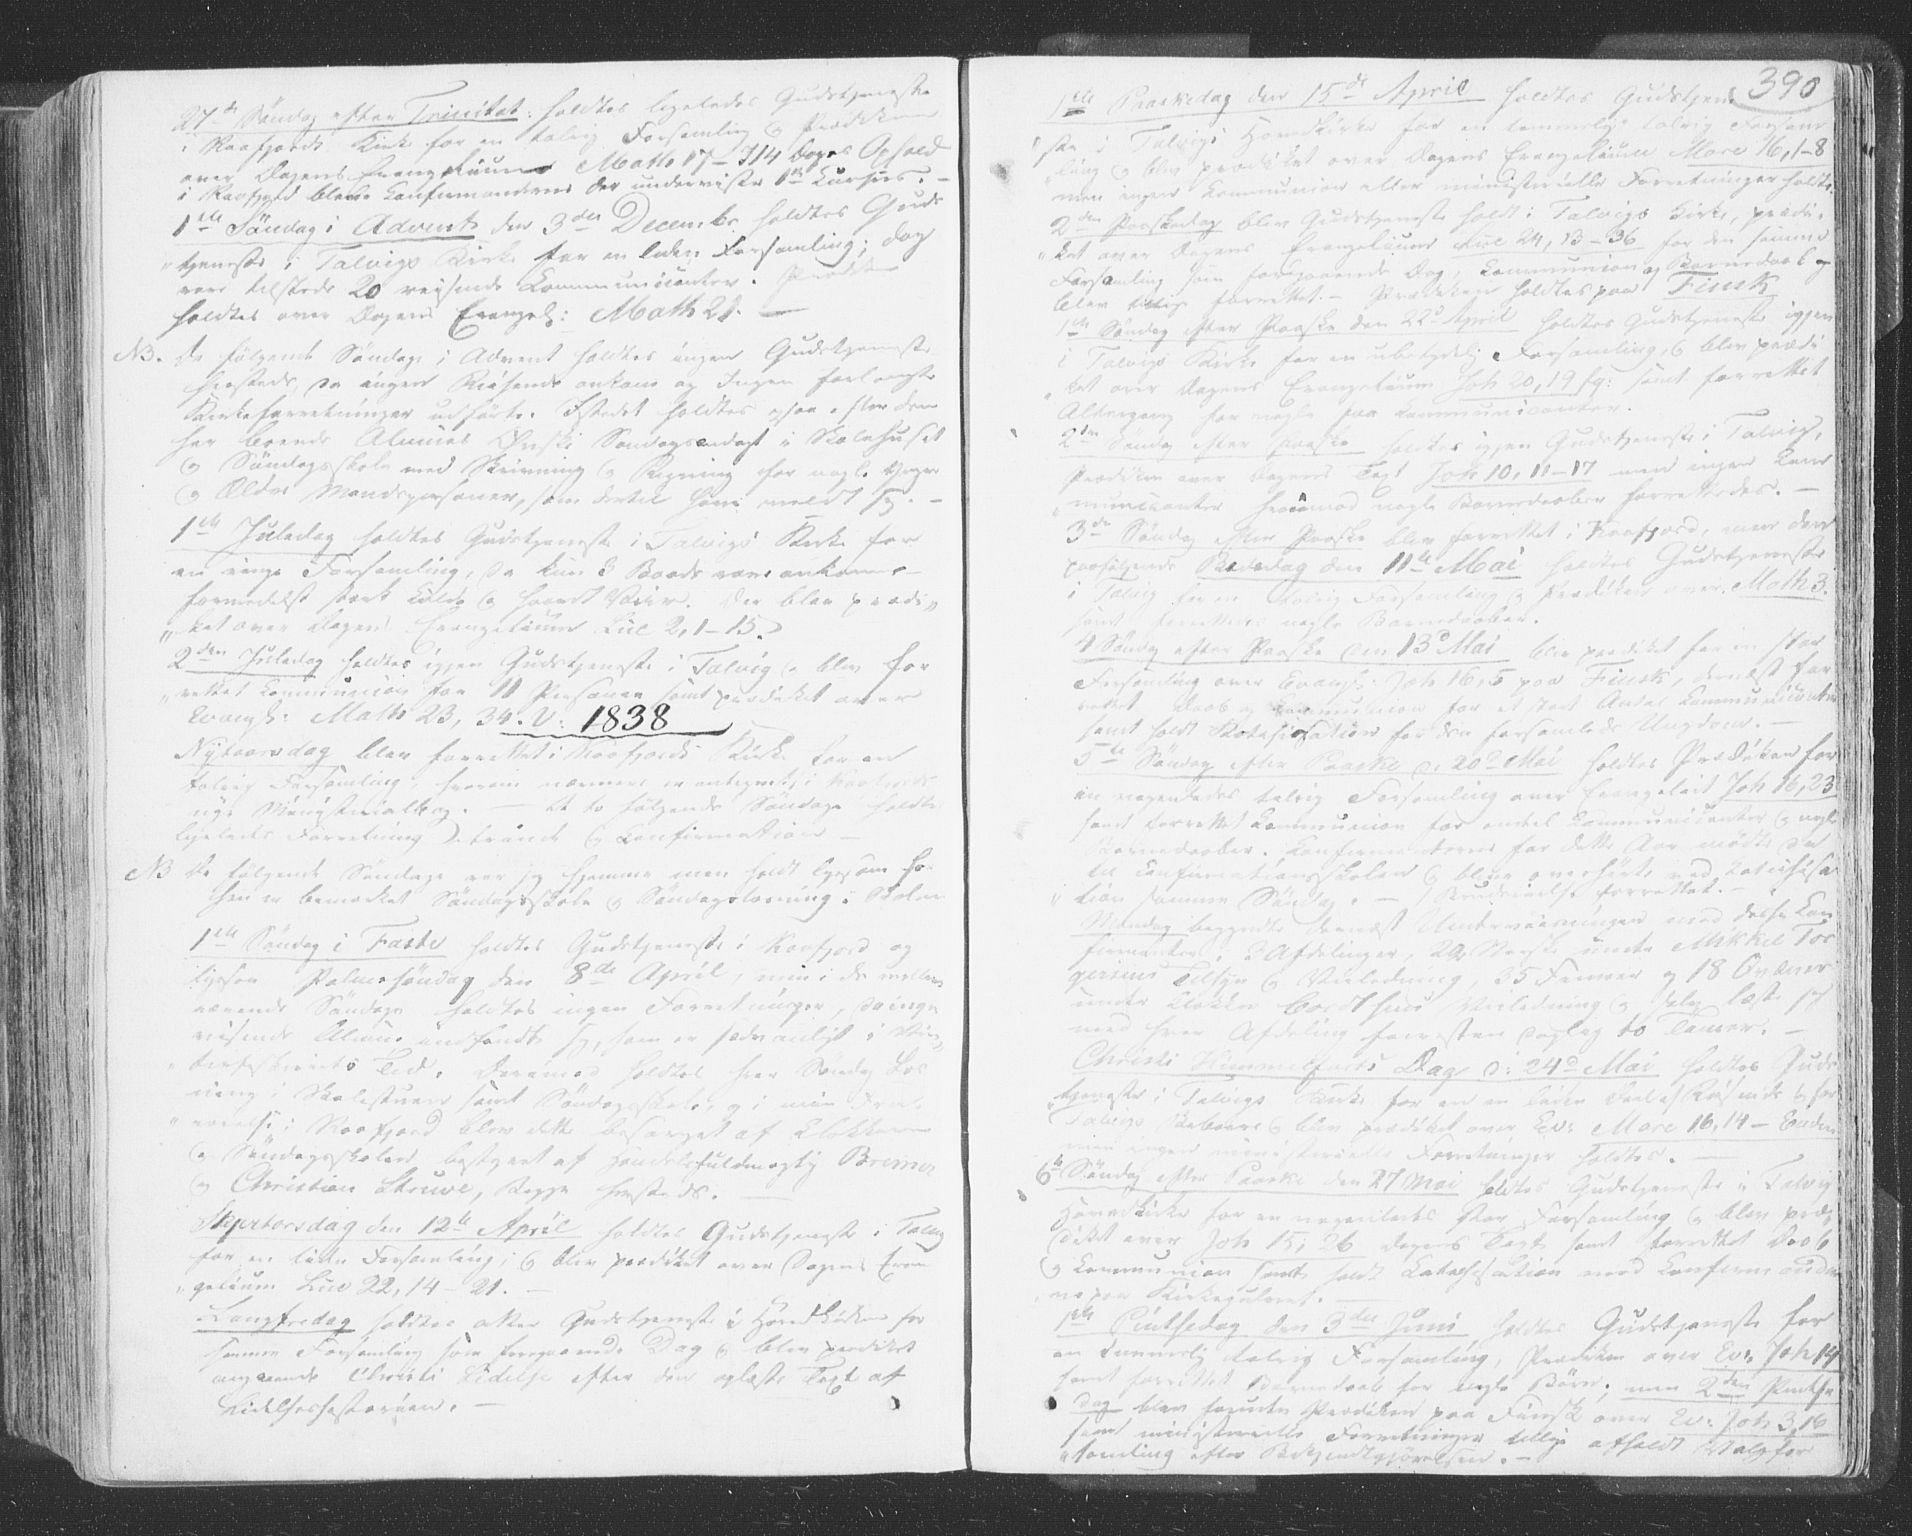 27de Søndag efter Trinitat: holdtes ligeledes Gudstjeneste
i Kaafjords Kirke for en talrig Forsamling og Prædiken
over Dagens Evangelium Math 17 – 14 Dages Ophold
i Kaafjord bleve Confirmanderne der underviste 1ste Cursus. –
1ste Søndag i Advent den 3die Decembr. holdtes Guds
tjeneste i Talvigs Kirke for en liden Forsamling; dog
vare tilstede 20 reisende Communicanter. Præd:
holdtes over Dagens Evangel: Math 21. –
NB. De følgende Søndage i Advent holdtes ingen Gudstjeneste
hersteds, da ingen Reisende ankom og Ingen forlangte
Kirkeforretninger udførte. Istedet holdtes ogsaa for dem
her boende Almues Søndagsandagt i Skolehuset
og Søndagsskole med Skrivning og Regning for nogle Unge
og Ældre Mandspersoner, som dertil have meldt sig. –
1ste Juledag holdtes Gudstjeneste i Talvigs Kirke for
en ringe Forsamling, da kun 3 Baade vare ankomne
formedelst stærk Kulde og haardt Veir. Der blev prædi
ket over Dagens Evangelium Luc 2, 1–15.
2den Juledag holdtes igjen Gudstjeneste i Talvig og blev for
rettet Communion for 11 Personer samt prædiket over
Evangel: Math 23, 34. v: 1838
Nytaarsdag blev forrettet i Kaafjords Kirke for en
talrig Forsamling, hvorom nærmere er antegnet i Kaafjords
nye Ministerialbog. – De to følgende Søndage holdtes
ligeledes Forretning dersteds og Confirmation –
NB De følgende Søndage var jeg hjemme men holdt ligesom før
hen er bemærket Søndagsskole og Søndagslæsning i Skolen
1ste Søndag i Faste holdtes Gudstjeneste i Kaafjord og
ligesaa Palmesøndag den 8de April, men i de mellem
værende Søndage holdtes ingen Forretninger, da ingen
reisende Almue indfandt sig, som er sædvanligt i Vin
terfiskeriets Tid. Derimod holdtes hver Søndag Læs
ning i Skolestuen samt Søndagsskole, og i min Fra
værelse i Kaafjord blev dette besørget af Klokkeren
og Søndagsskolen bestyret af Handelsfuldmægtig Bremer
og Christian Struve, Begge hersteds. –
Skjertorsdag den 12te April holdtes Gudstjeneste i Talvig
for en liden Forsamling; og blev prædiket over Dagens Evan
gelium Luc 22, 14–21. –
Langfredag holdtes atter Gudstjeneste i Hovedkirken for
samme Forsamling som foregaaende Dag og blev prædiket
angaaende Christi Lidelse efter den oplæste Text af
Lidelseshistorien. –
390
1ste Paaskedag den 15de April holdtes Gudstjene
ste i Talvigs Hovedkirke for en temmelig talrig Forsam
ling og blev prædiket over Dagens Evangelium Marc 16, 1–8
men ingen Communion eller ministerielle Forretninger holdt.
2den Paaskedag blev Gudstjeneste holdt i Talvigs Kirke, prædi
ket over Dagens Evangelium Luc 24, 13–36 for den samme
Forsamling som foregaaende Dag, Communion og Barnedaab og
blev tillige forrettet. – Prædiken holdtes paa Finsk
1ste Søndag efter Paaske den 22d April holdtes Gudstjeneste igjen
i Talvigs Kirke for en ubetydelig Forsamling, og blev prædi
ket over Dagens Evangelium Joh 20, 19 fg: samt forrettet
Altergang for nogle faa Communicanter.
2den Søndag efter Paaske holdtes igjen Gudstjeneste i Talvig,
Prædiken over Dagens Text Joh 10, 11–17 men ingen Com
municanter hvorimod nogle Barnedaaber forrettedes. –
3de Søndag efter Paaske blev forrettet i Kaafjord, men den
paafølgende Bededag den 11te Mai holdtes Gudstjeneste
i Talvig for en talrig Forsamling og Prædiken over Math 3.
samt forrettedes nogle Barnedaaber.
4 Søndag efter Paaske den 13d Mai blev prædiket for en stor
Forsamling over Evangel: Joh 16, 5 paa Finsk, dernæst for
rettet Daab og Communion for et stort Antal Communicanter
samt holdt Katechisation for den forsamlede Ungdom. –
5te Søndag efter Paaske d. 20d Mai holdtes Prædiken for
en nogenledes talrig Forsamling over Evangeliet Joh 16, 23
samt forrettet Communion for endel Communicanter og nogle
Barnedaaber. Confirmanterne for dette Aar mødte da
til Confirmationsskolen og bleve overhørte ved Katechisa
tion samme Søndag. – Brudevielse forrettet. –
Mandag begyndte dernæst Underviisningen med disse Con
firmanter, i 3 Afdelinger, 20 Norske under Mikkel Tor
gersens Tilsyn og Veiledning, 35 Finner og 18 Qvæner
under Klokker Bordthus Veiledning og selv læste jeg
med hver Afdeling forresten daglig to Timer. –
Christi Himmelfarts Dag d: 24d Mai holdtes Guds
tjeneste i Talvigs Kirke for en en liden Deel af Reisende og for
Talvigs Beboere og blev prædiket over Ev: Marc 16, 14 – Enden
men ingen ministerielle Forretninger holdtes. –
6te Søndag efter Paaske den 27 Mai holdtes Gudstjeneste i Talvig
Hovedkirke for en nogenledes stor Forsamling og blev præ
diket over Joh 15, 26 Dagens Text samt forrettet Daab
og Communion samt holdt Catechisation med Confirmander
ne paa Kirkegulvet. –
1ste Pintsedag den 3die Juni holdtes Gudstjeneste for
en temmelig talrig Forsamling, Prædiken over Ev: Joh 14
samt forrettet Barnedaab for nogle Børn. men 2den Pintse
dag blev foruden Prædiken paa Finsk over Ev: Joh 3, 16
samt ministerielle Forretninger tillige afholdt Valgfor
samling efter Bekjendtgjørelsen. –